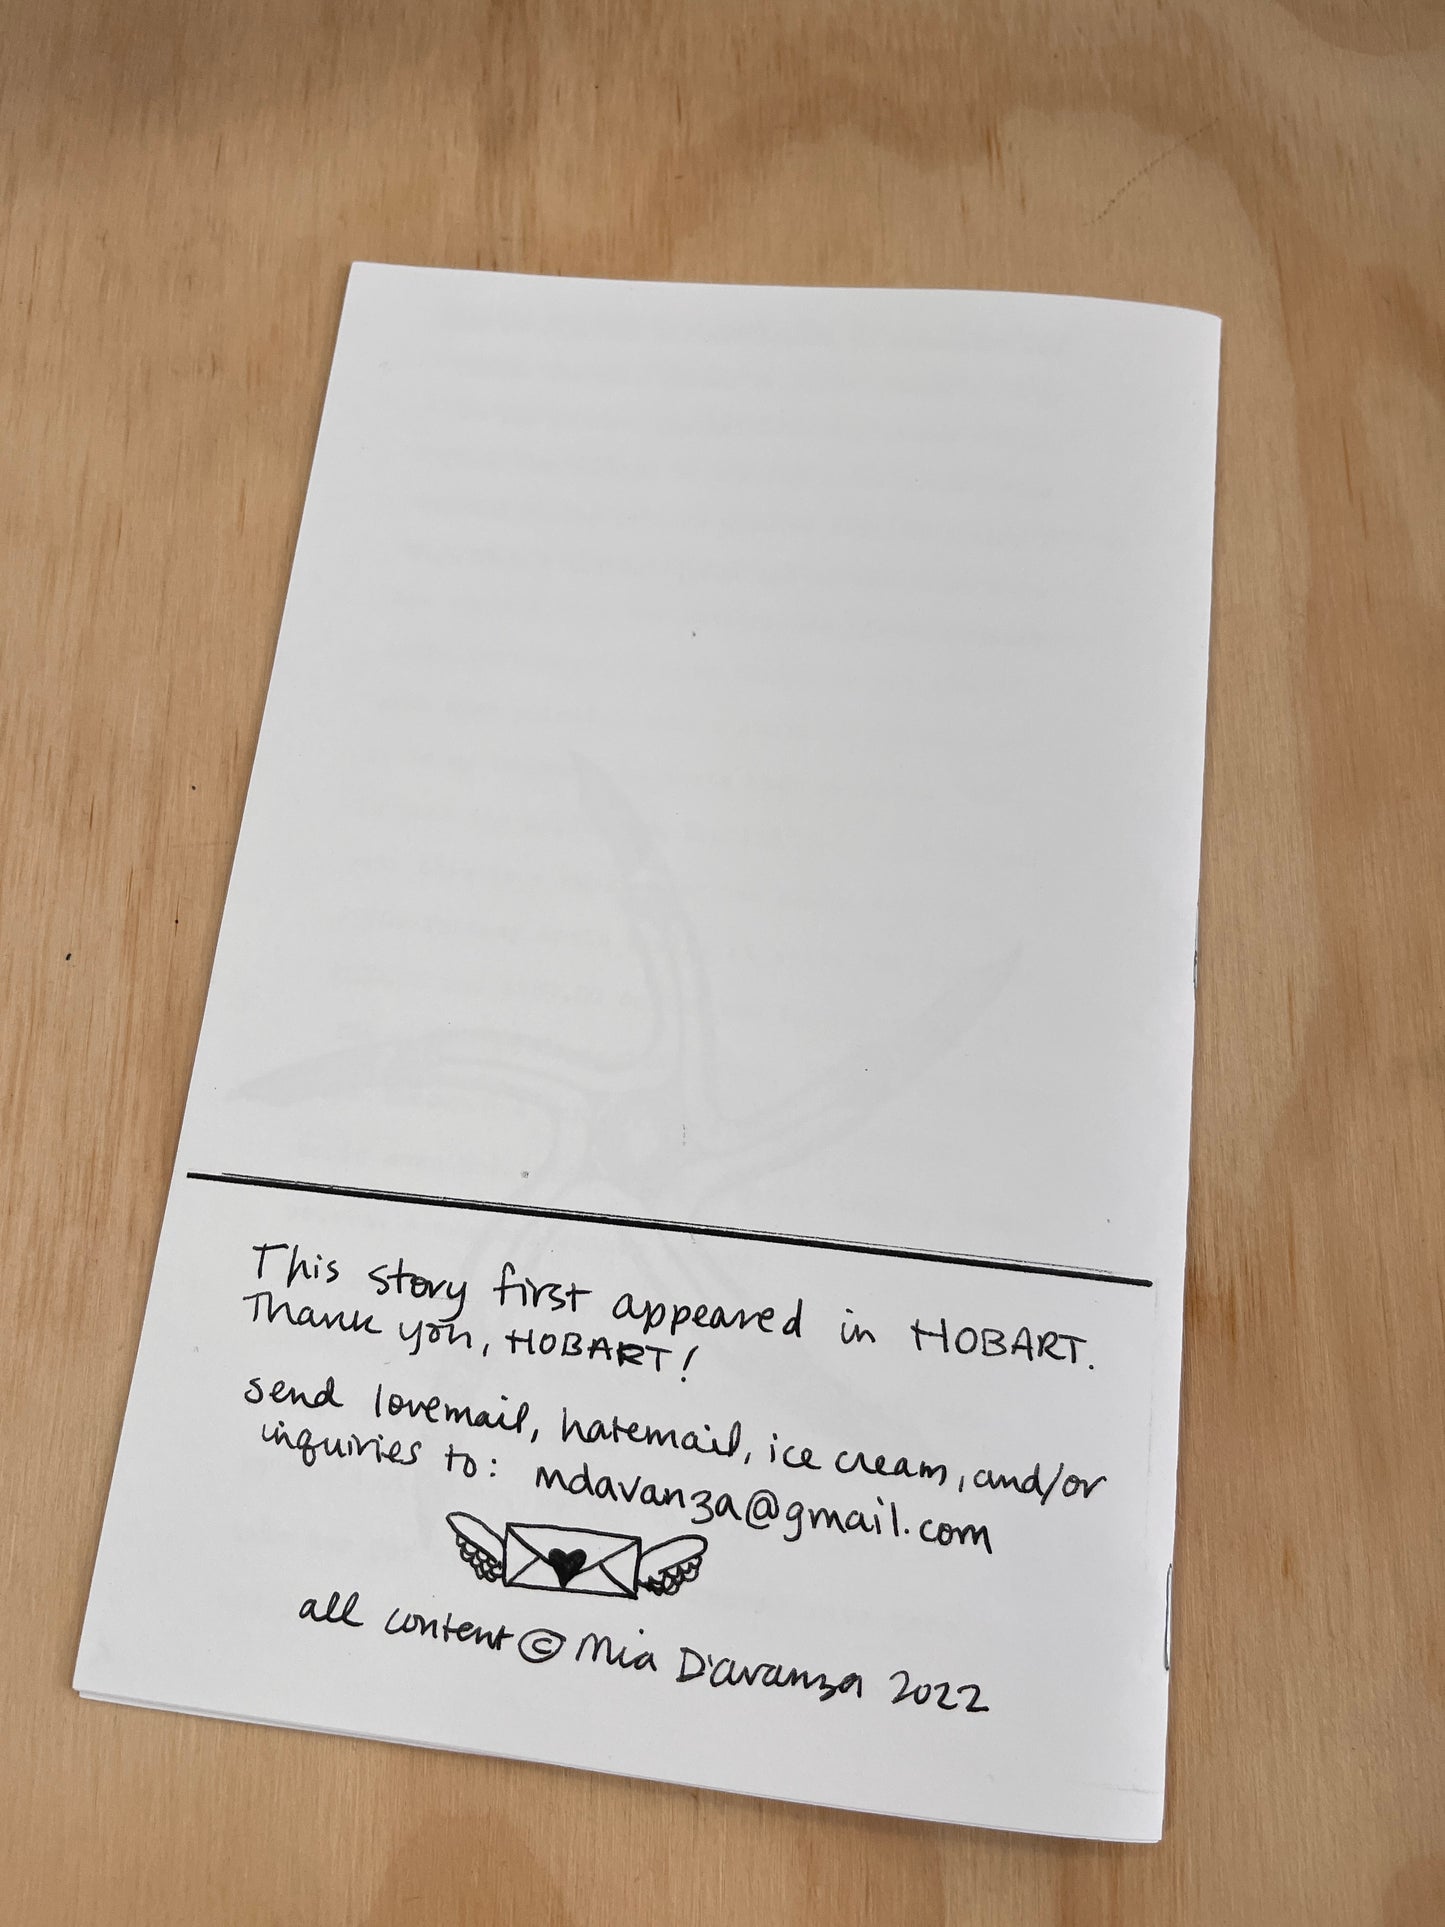 This story first appeared in HOBART.
Thank you, HOBART!
send lovemail, hatemail, ice cream, and/or
inquiries to: mdavanza@gmail.com
all content © Mia D'avanza 2022